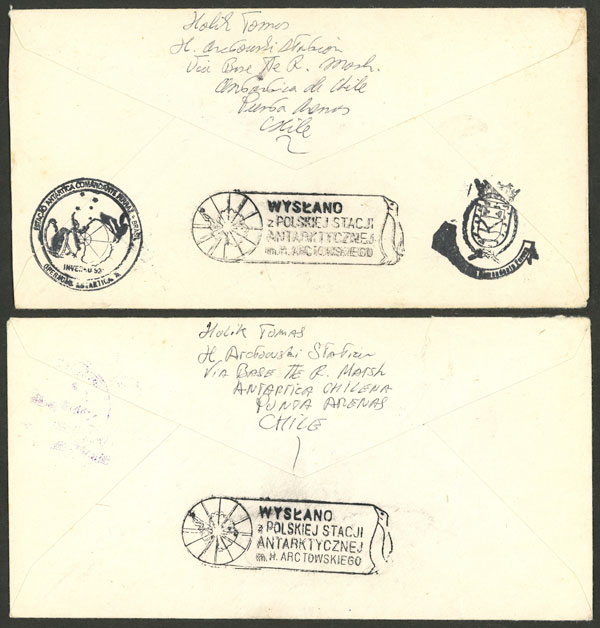 Holik Tomas
H. Arctowski Station
Via Base Tte R. Marsh.
Antartica de Chile
Punta Arenas
Chile
ESTAÇÃO ANTÁRTICA COMANDANTE FERRAZ - BRASIL
INVERNO 92
OPERAÇÃO ANTÁRTICA X
WYSŁANO
z POLSKIEJ STACJI
ANTARKTYCZNEJ
im. H. ARCTOWSKIEGO
Holik TOMAS
H. Arctowski Station
Via BASE TTE R. MARSH
ANTARTICA CHILENA
PUNTA ARENAS
CHILE
WYSŁANO
z POLSKIEJ STACJI
ANTARKTYCZNEJ
im. H. ARCTOWSKIEGO